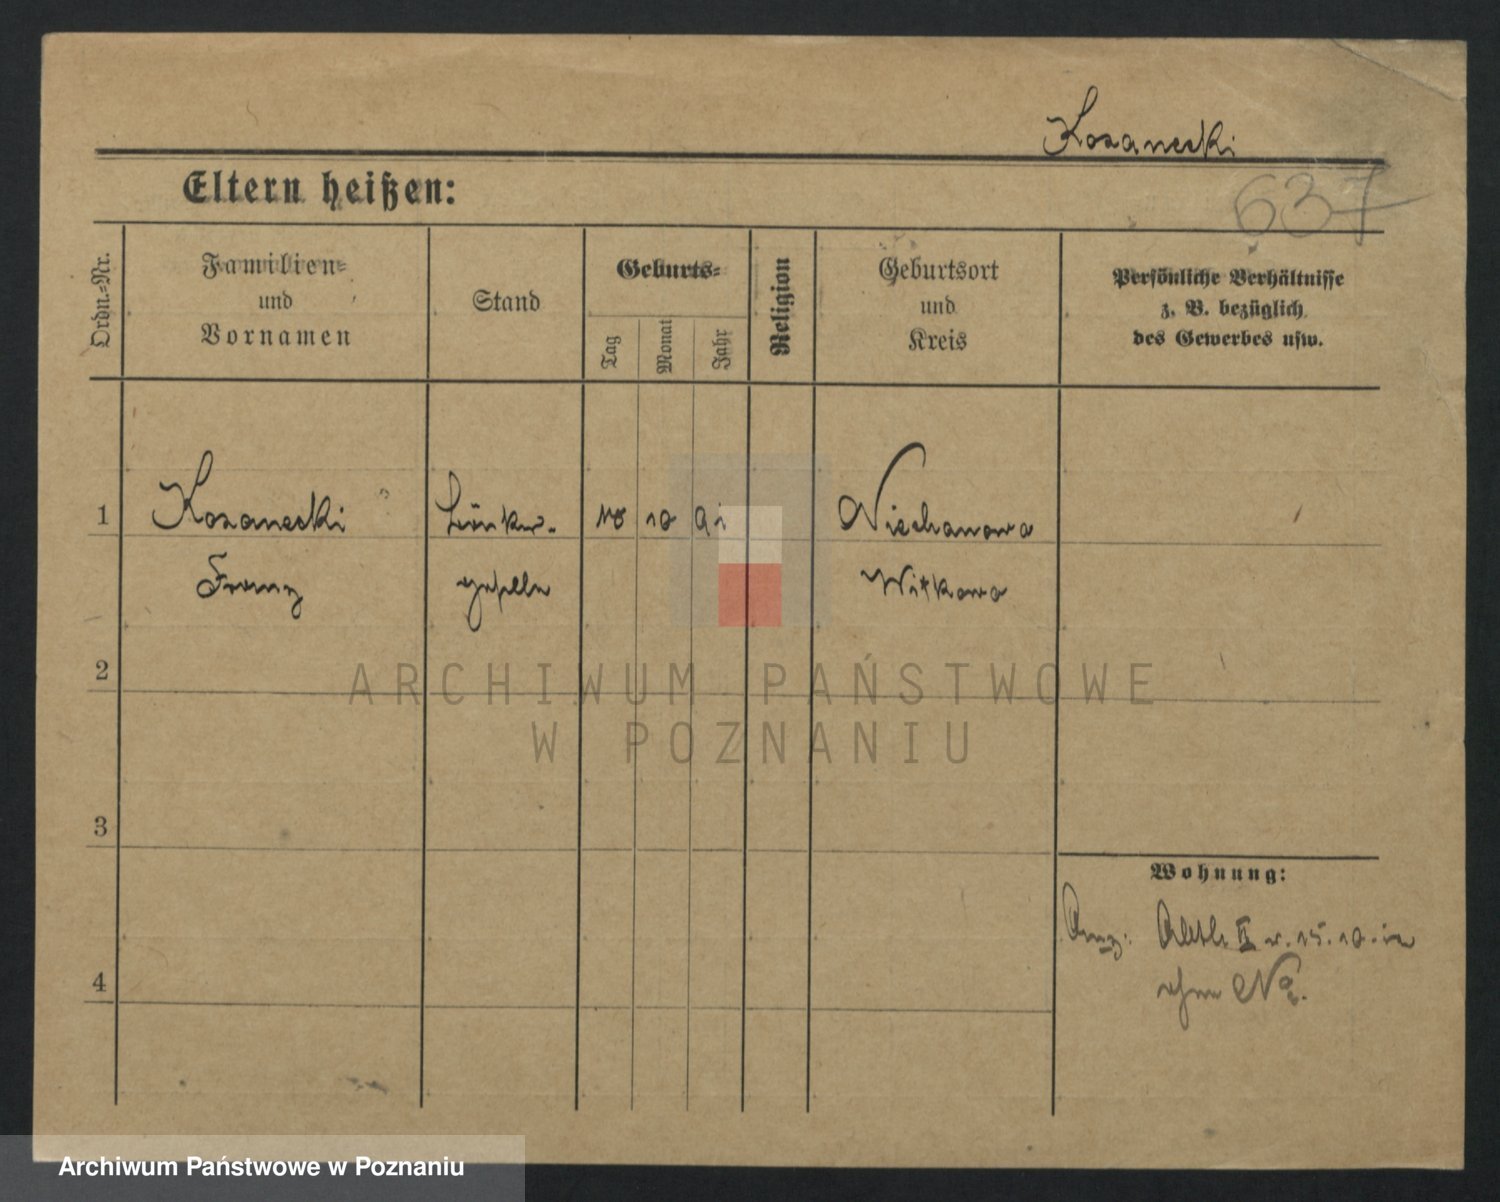 Kosanecki
637
Eltern heißen:
Ordn.-Nr.
Familien-
und
Vornamen
Stand
Geburts-
Tag
Monat
Jahr
Religion
Geburtsort
und
Kreis
Persönliche Verhältnisse
z. B. bezüglich
des Gewerbes usw.
1
Kosanecki
Franz
geselle
10
Niechanowo
Witkowo
2
3
4
Wohnung:
Anz. Abtl. II v. 15. 10.
ohne No.
ARCHIWUM PAŃSTWOWE
W POZNANIU
Archiwum Państwowe w Poznaniu